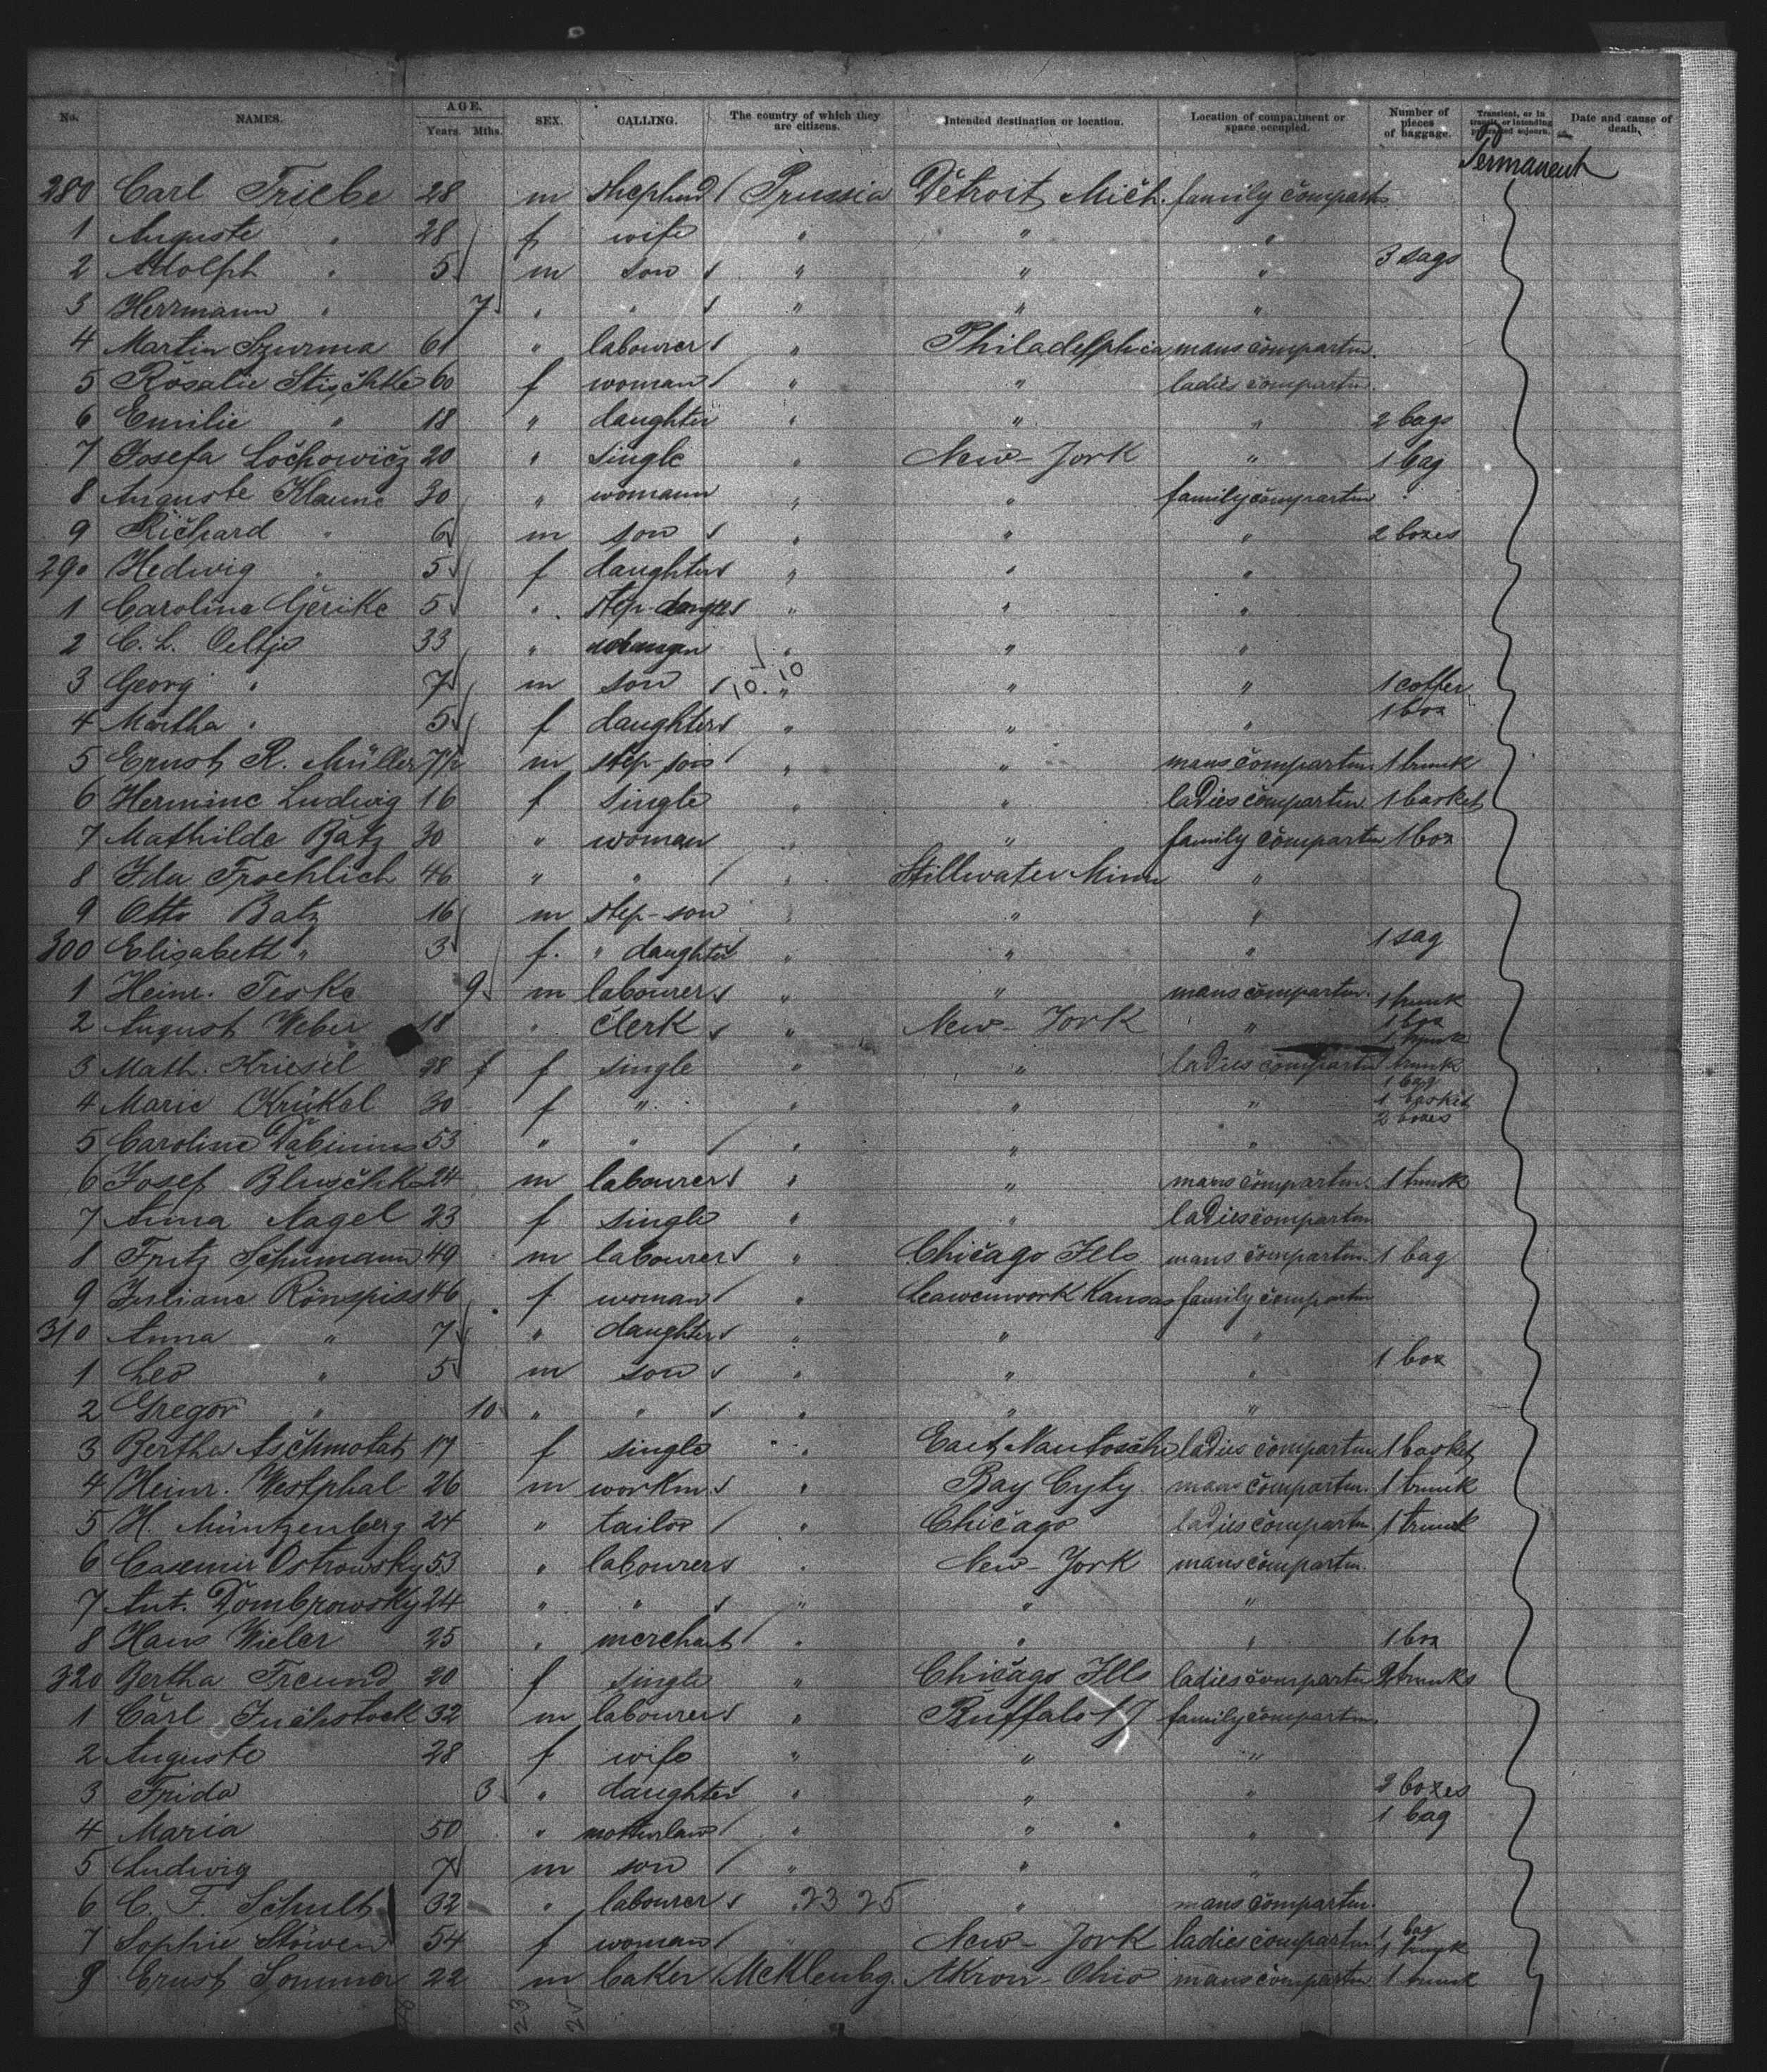 No. NAMES. AGE. Years. Mths. SEX. CALLING. The country of which they are citizens. Intended destination or location. Location of compartment or space occupied. Number of pieces of baggage. Transient, or in transit, or intending protracted sojourn. Date and cause of death.
Permanent
280 Carl Triebe 28 m shepherd Prussia Detroit Mich. family compart
1 Auguste " 28 f wife " " "
2 Adolph " 5 m son " " " 3 sags
3 Herrmann " 7 " " " " "
4 Martin Szurma 61 " labourer " Philadelphia mans compartm.
5 Rosalie 60 f woman " " ladies compartm.
6 Emilie " 18 " daughter " " " 2 bags
7 Josefa Lochowicz 20 " single " New-York " 1 bag
8 Auguste Klaune 30 " womann " " family compartm
9 Richard " 6 m son " " " 2 boxes
290 Hedwig " 5 f daughter " " "
1 Carolina Gerike 5 " step-daught " " "
2 C. L. Oeltje 33 " " " "
10. 10
3 Georg " 7 m son " " " 1 coffer
4 Martha " 5 f daughter " " " 1 box
5 Ernst R. Müller 7½ m step-son " " mans compartm. 1 trunk
6 Hermine Ludwig 16 f single " " ladies compartm 1 basket
7 Mathilde Batz 30 " woman " " family compartm 1 box
8 Ida Froehlich 46 " " " Stillwater Minn "
9 Otto Batz 16 m step-son " " "
300 Elisabeth " 3 f. " daughter " " " 1 sag
1 Heinr. Teske 9 m labourer " " mans compartm. 1 trunk
2 August Weber 18 " clerk " New-York " 1 box 1 trunk
3 Math. Kriesel 28 f f single " " ladies compartm 1 trunk 1 bag
4 Marie Krükel 30 f " " " " 1 basket 2 boxes
5 Caroline 53 " " " " "
6 Josef Bluschke 24 m labourer " " mans compartm. 1 trunk
7 Anna Nagel 23 f single " " ladies compartm
8 Fritz Schumann 49 m labourer " Chicago Ills mans compartm. 1 bag
9 Juliane Rönspiss 46 f woman " Leawenwork Kansas family compartm
310 Anna " 7 " daughter " " "
1 Leo " 5 m son " " " 1 box
2 Gregor " 10 " " " " "
3 Bertha Aschmotat 17 f single " East ladies compartm 1 basket
4 Heinr. Westphal 26 m workm " Bay Cyty mans compartm. 1 trunk
5 H. Müntzenberg 24 " tailor " Chicago ladies compartm 1 trunk
6 Casemir Ostrowsky 53 " labourer " New-York mans compartm.
7 Ant. Dombrowsky 24 " " " " "
8 Hans Wieler 25 " merchant " " " 1 box
320 Bertha Freund 20 f single " Chicago Ills ladies compartm 2 trunks
1 Carl Fuchstock 32 m labourer " Buffalo family compartm.
2 Auguste 28 f wife " " "
3 Frida 3 " daughter " " " 3 boxes
4 Maria 50 " motherlaw " " " 1 bag
5 Ludwig 7 m son " " "
6 C. F. Schult 32 " labourer 23 25 " mans compartm.
7 Sophie Stöwen 54 f woman " New-York ladies compartm 1 bag 1 trunk
8 Ernst Sommer 22 m baker Mcklenbg. Akron-Ohio mans compartm 1 trunk
23 25